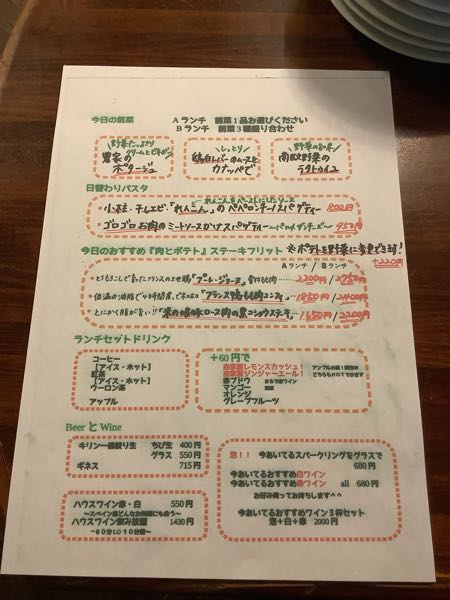 今日の前菜
Aランチ 前菜1品お選びください
Bランチ 前菜3種盛り合わせ
野菜たっぷり
クリームとビネガー
農家の
ポタージュ
しっとり
鶏白レバーのムースを
カナッペで
野菜の旨味
南欧野菜の
ラタトゥイユ
日替わりパスタ
れんこんをペーストにしたソース
・小柱・干しエビ・「れんこん」のペペロンチーノスパゲティー 800円
・ゴロゴロお肉のミートソースかけスパゲティー 950円
今日のおすすめ『肉とポテト』ステーキフリット
※ポテトを野菜に変更できます!
+220円
Aランチ / Bランチ
「プーレ・ジョーヌ」骨付もも肉 2200円/2750円
「フランス鴨もも肉コンフィ」 1850円/2400円
「米の娘豚ロース肉の黒コショウステーキ」 1650円/2200円
ランチセットドリンク
コーヒー
【アイス・ホット】
紅茶
【アイス・ホット】
ウーロン茶
アップル
+60円で
自家製レモンスカッシュ!
自家製ジンジャーエール!
どちらもHOTできます
赤ブドウ まるで赤ワイン
マンゴー
オレンジ
グレープフルーツ
Beer と Wine
キリン一番絞り生 ちび生 400円
グラス 550円
ギネス 715円
ハウスワイン赤・白 550円
~スペイン産どんなお料理にも合う~
ハウスワイン飲み放題 1430円
~60分LO10分前~
泡!! 今あいてるスパークリングをグラスで
680円
今あいてるおすすめ白ワイン
今あいてるおすすめ赤ワイン all 680円
お好み伺ってお持ちします^^
今あいてるおすすめワイン3杯セット
泡+白+赤 2000円